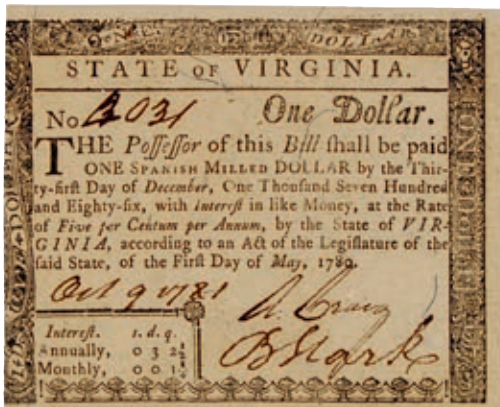 ONE DOLLAR
STATE OF VIRGINIA.
No 2031 One Dollar.
THE Poſſeſſor of this Bill ſhall be paid
ONE SPANISH MILLED DOLLAR by the Thir-
ty-firſt Day of December, One Thouſand Seven Hundred
and Eighty-ſix, with intereſt in like Money, at the Rate
of Five per Centum per Annum, by the State of VIR-
GINIA, according to an Act of the Legiſlature of the
ſaid State, of the Firſt Day of May, 1780.
Oct 9 1781
A. Craig
B Stark
Intereſt. s. d. q.
Annually, 0 3 2
Monthly, 0 0 1